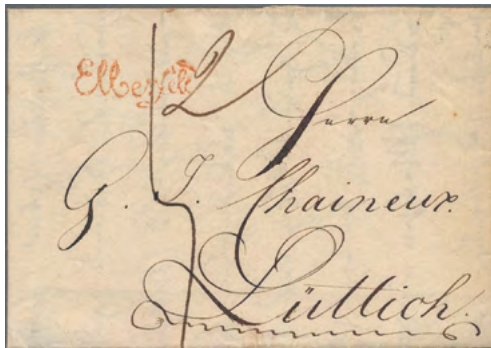 Elberfeld
2
Herrn
G. J. Chaineux.
Lüttich.